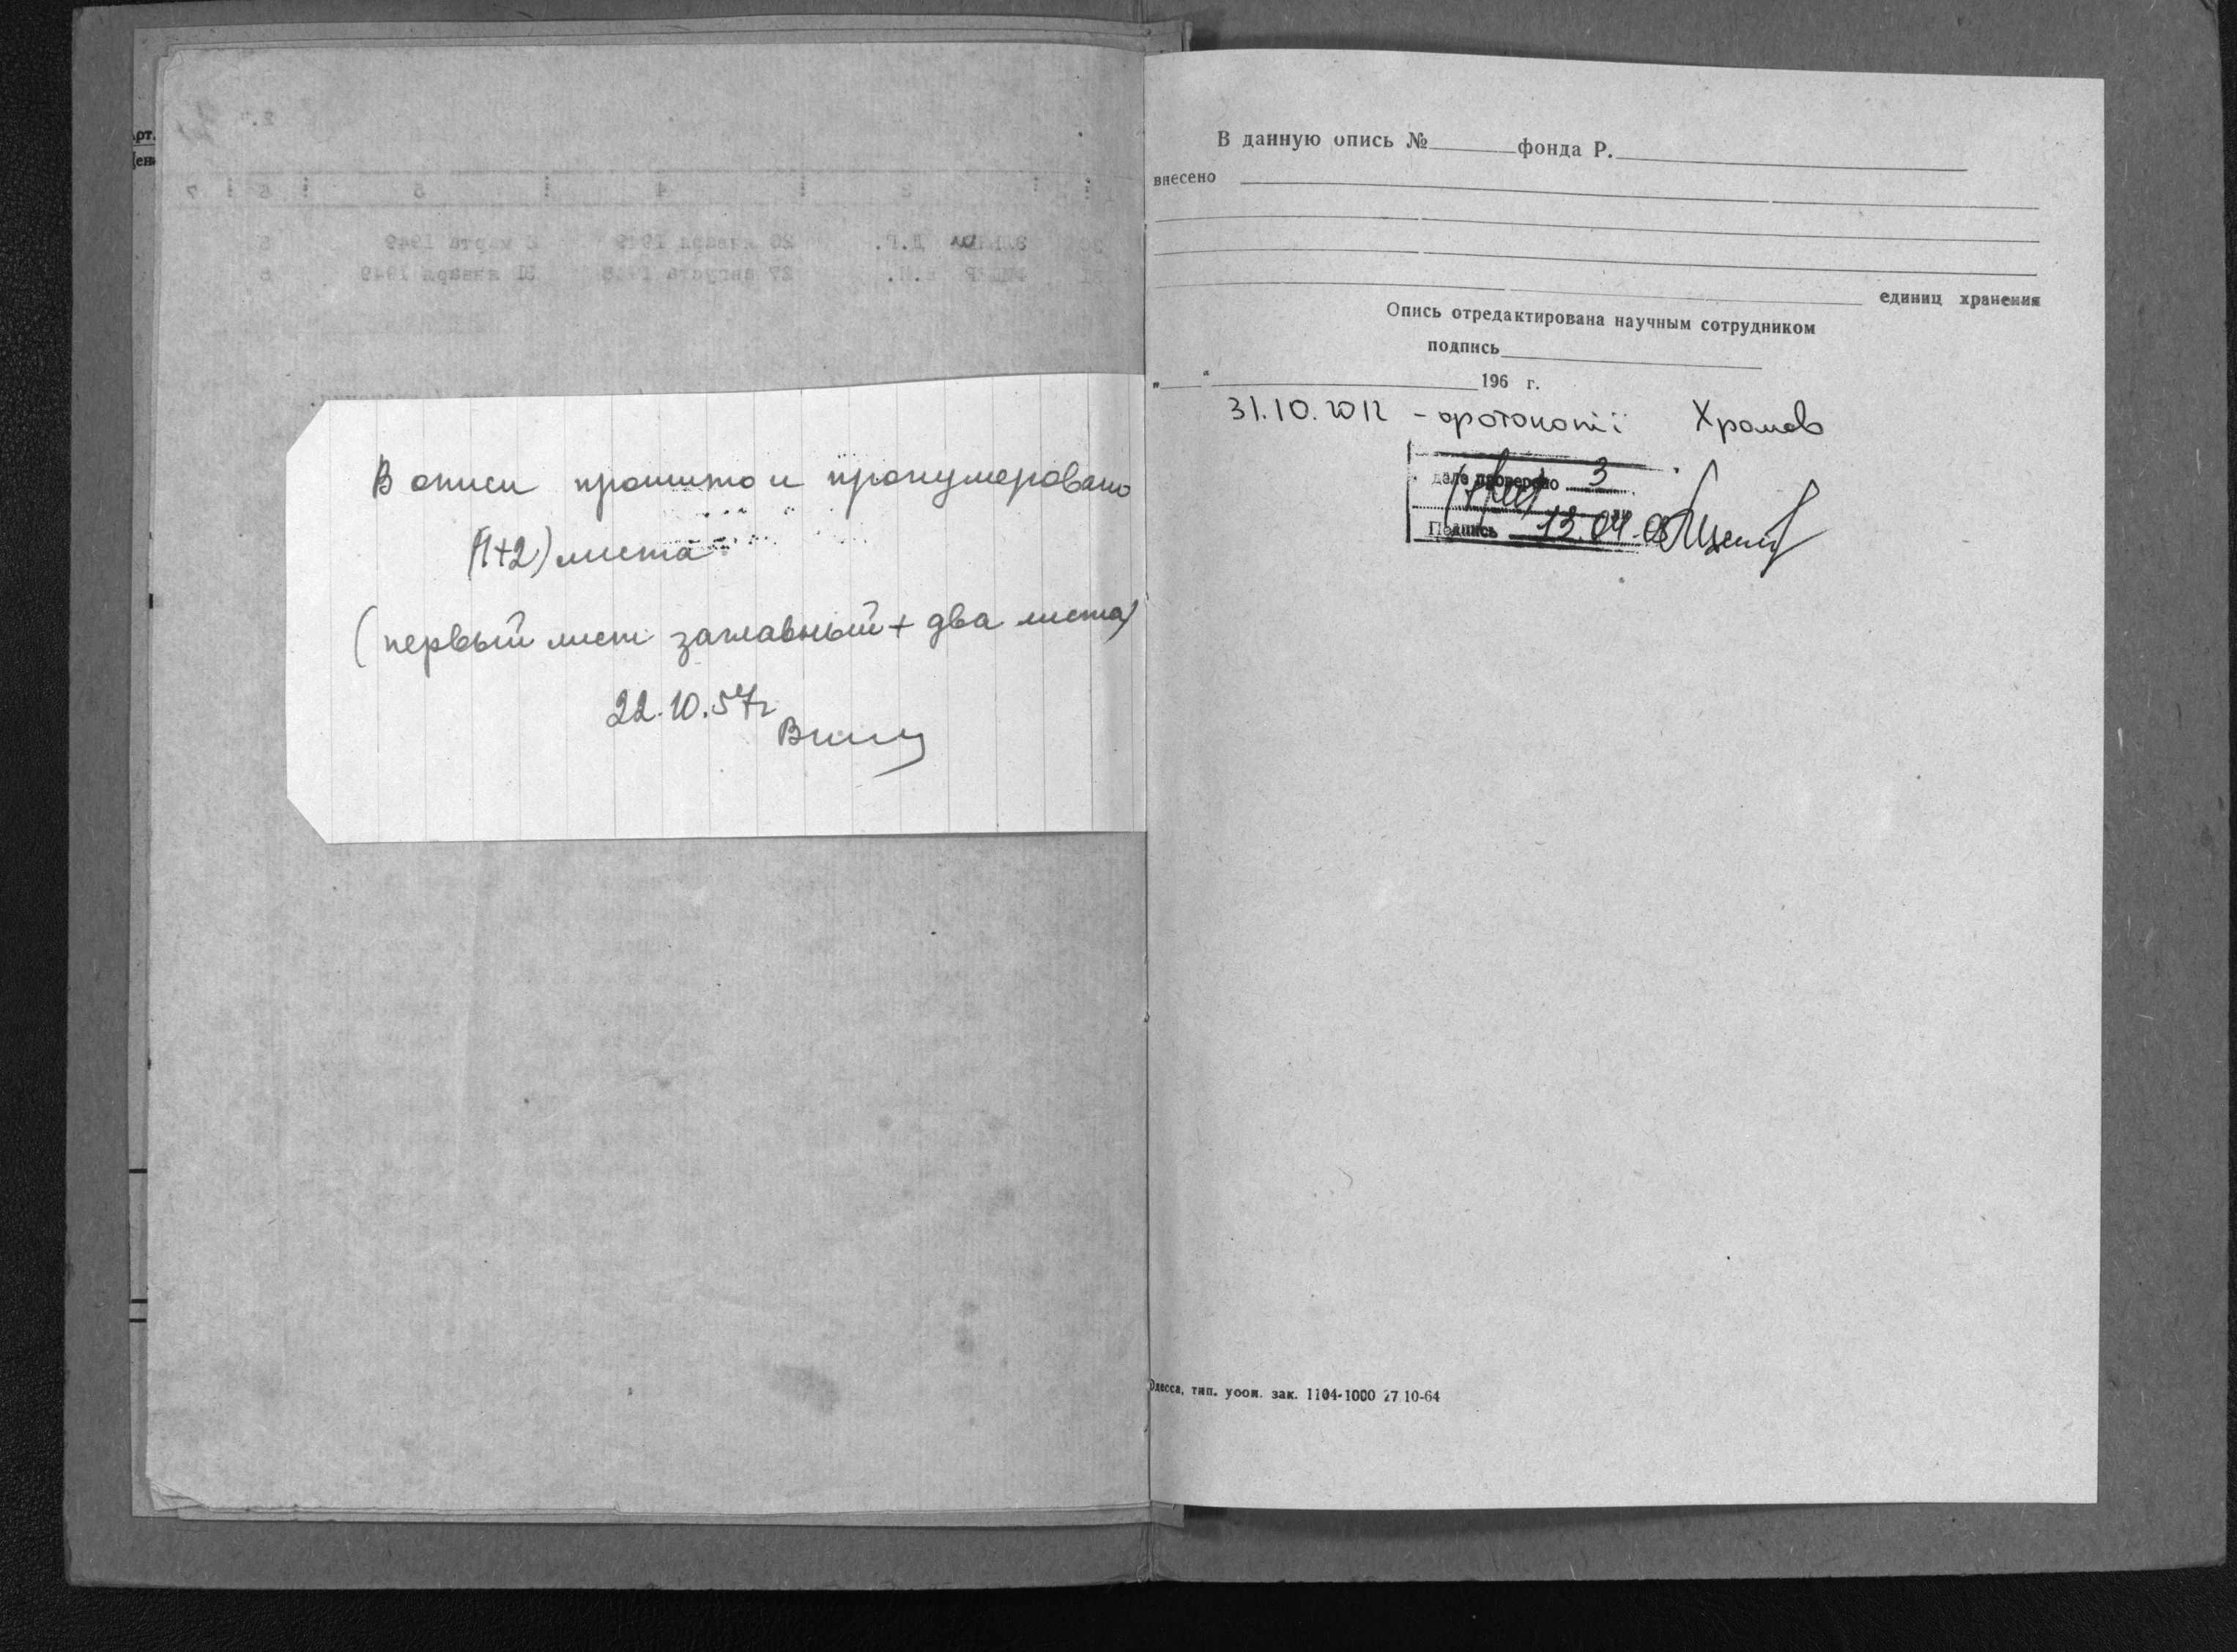 В описи прошито и пронумеровано
(1+2) листа
(первый лист заглавный + два листа)
22.10.57г
В данную опись № фонда Р.
внесено
единиц хранения
Опись отредактирована научным сотрудником
подпись
„ “ 196 г.
31.10.2012 - фотокопії Храмов
дело проверено 3
Подпись 13.04.
Одесса, тип. зак. 1104-1000 27 10-64